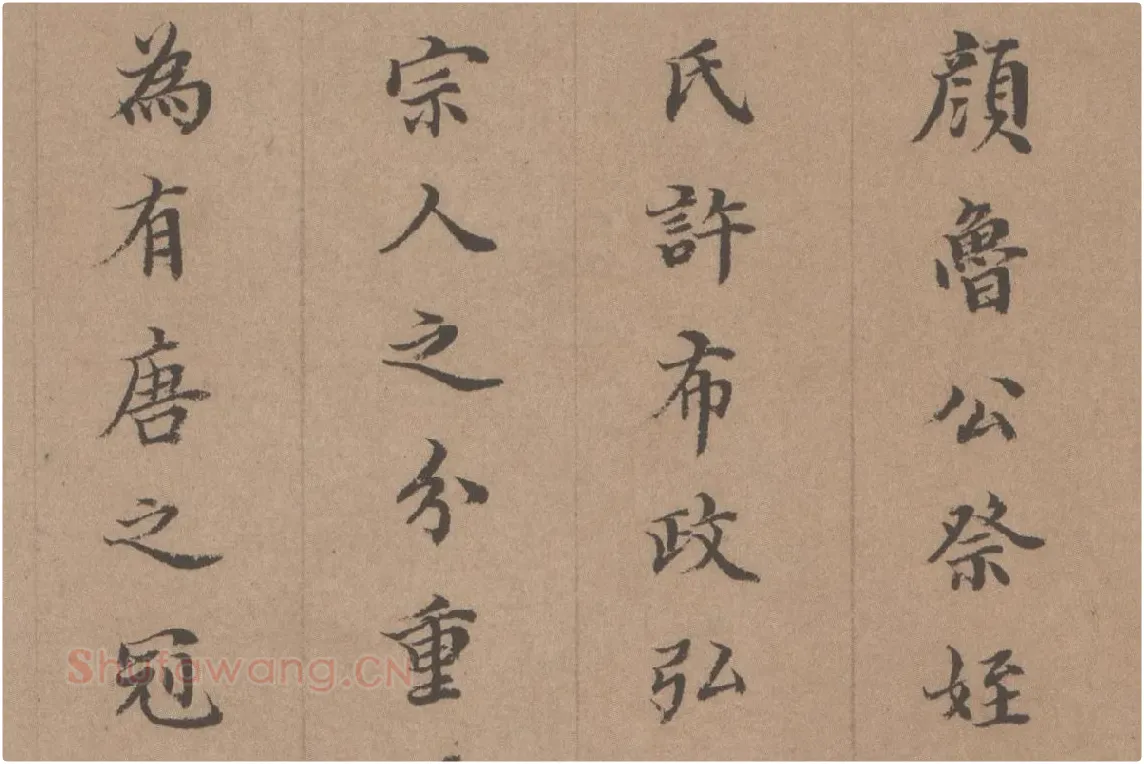 顏魯公祭姪
氏許布政弘
宗人之分重
為有唐之冠
Shufawang.CN